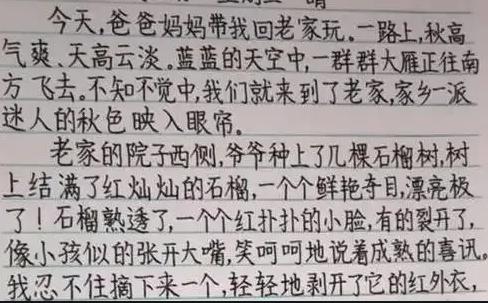 今天,爸爸妈妈带我回老家玩。一路上,秋高
气爽、天高云淡。蓝蓝的天空中,一群群大雁正往南
方飞去。不知不觉中,我们就来到了老家,家乡一派
迷人的秋色映入眼帘。
老家的院子西侧,爷爷种上了几棵石榴树,树
上结满了红灿灿的石榴,一个个鲜艳夺目,漂亮极
了!石榴熟透了,一个个红扑扑的小脸,有的裂开了,
像小孩似的张开大嘴,笑呵呵地说着成熟的喜讯。
我忍不住摘下来一个,轻轻地剥开了它的红外衣,